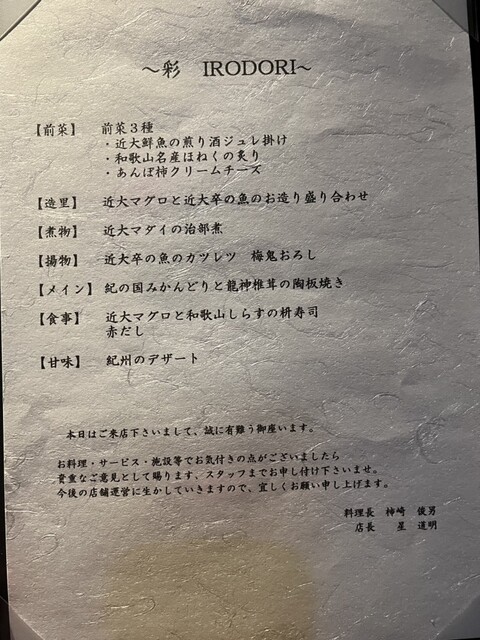 ～彩　IRODORI～
【前菜】　前菜３種
・近大鮮魚の煎り酒ジュレ掛け
・和歌山名産ほねくの炙り
・あんぽ柿クリームチーズ
【造里】　近大マグロと近大卒の魚のお造り盛り合わせ
【煮物】　近大マダイの治部煮
【揚物】　近大卒の魚のカツレツ　梅鬼おろし
【メイン】　紀の国みかんどりと龍神椎茸の陶板焼き
【食事】　近大マグロと和歌山しらすの枡寿司
赤だし
【甘味】　紀州のデザート
本日はご来店下さいまして、誠に有難う御座います。
お料理・サービス・施設等でお気付きの点がございましたら
貴重なご意見として賜ります、スタッフまでお申し付け下さいませ。
今後の店舗運営に生かしていきますので、宜しくお願い申し上げます。
料理長　柿崎　俊男
店長　星　道明